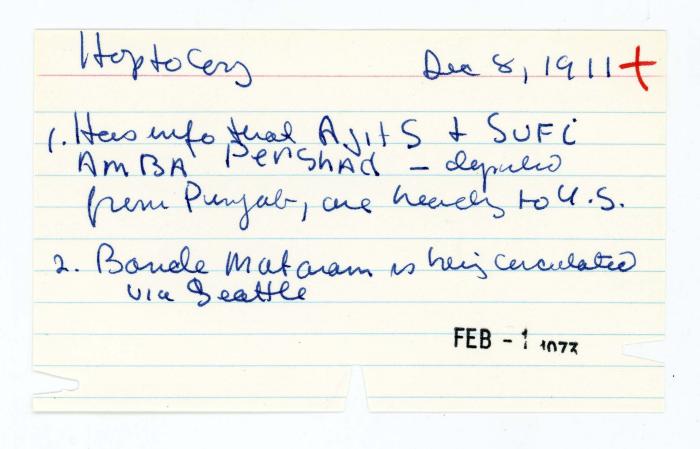 H to Cory Dec 8, 1911 +
1. Has info that Ajit S + SUFi
AMBA PERSHAd - deported
from Punjab, are heading to U.S.
2. Bande Mataram is being circulated
via Seattle
FEB - 1 1973